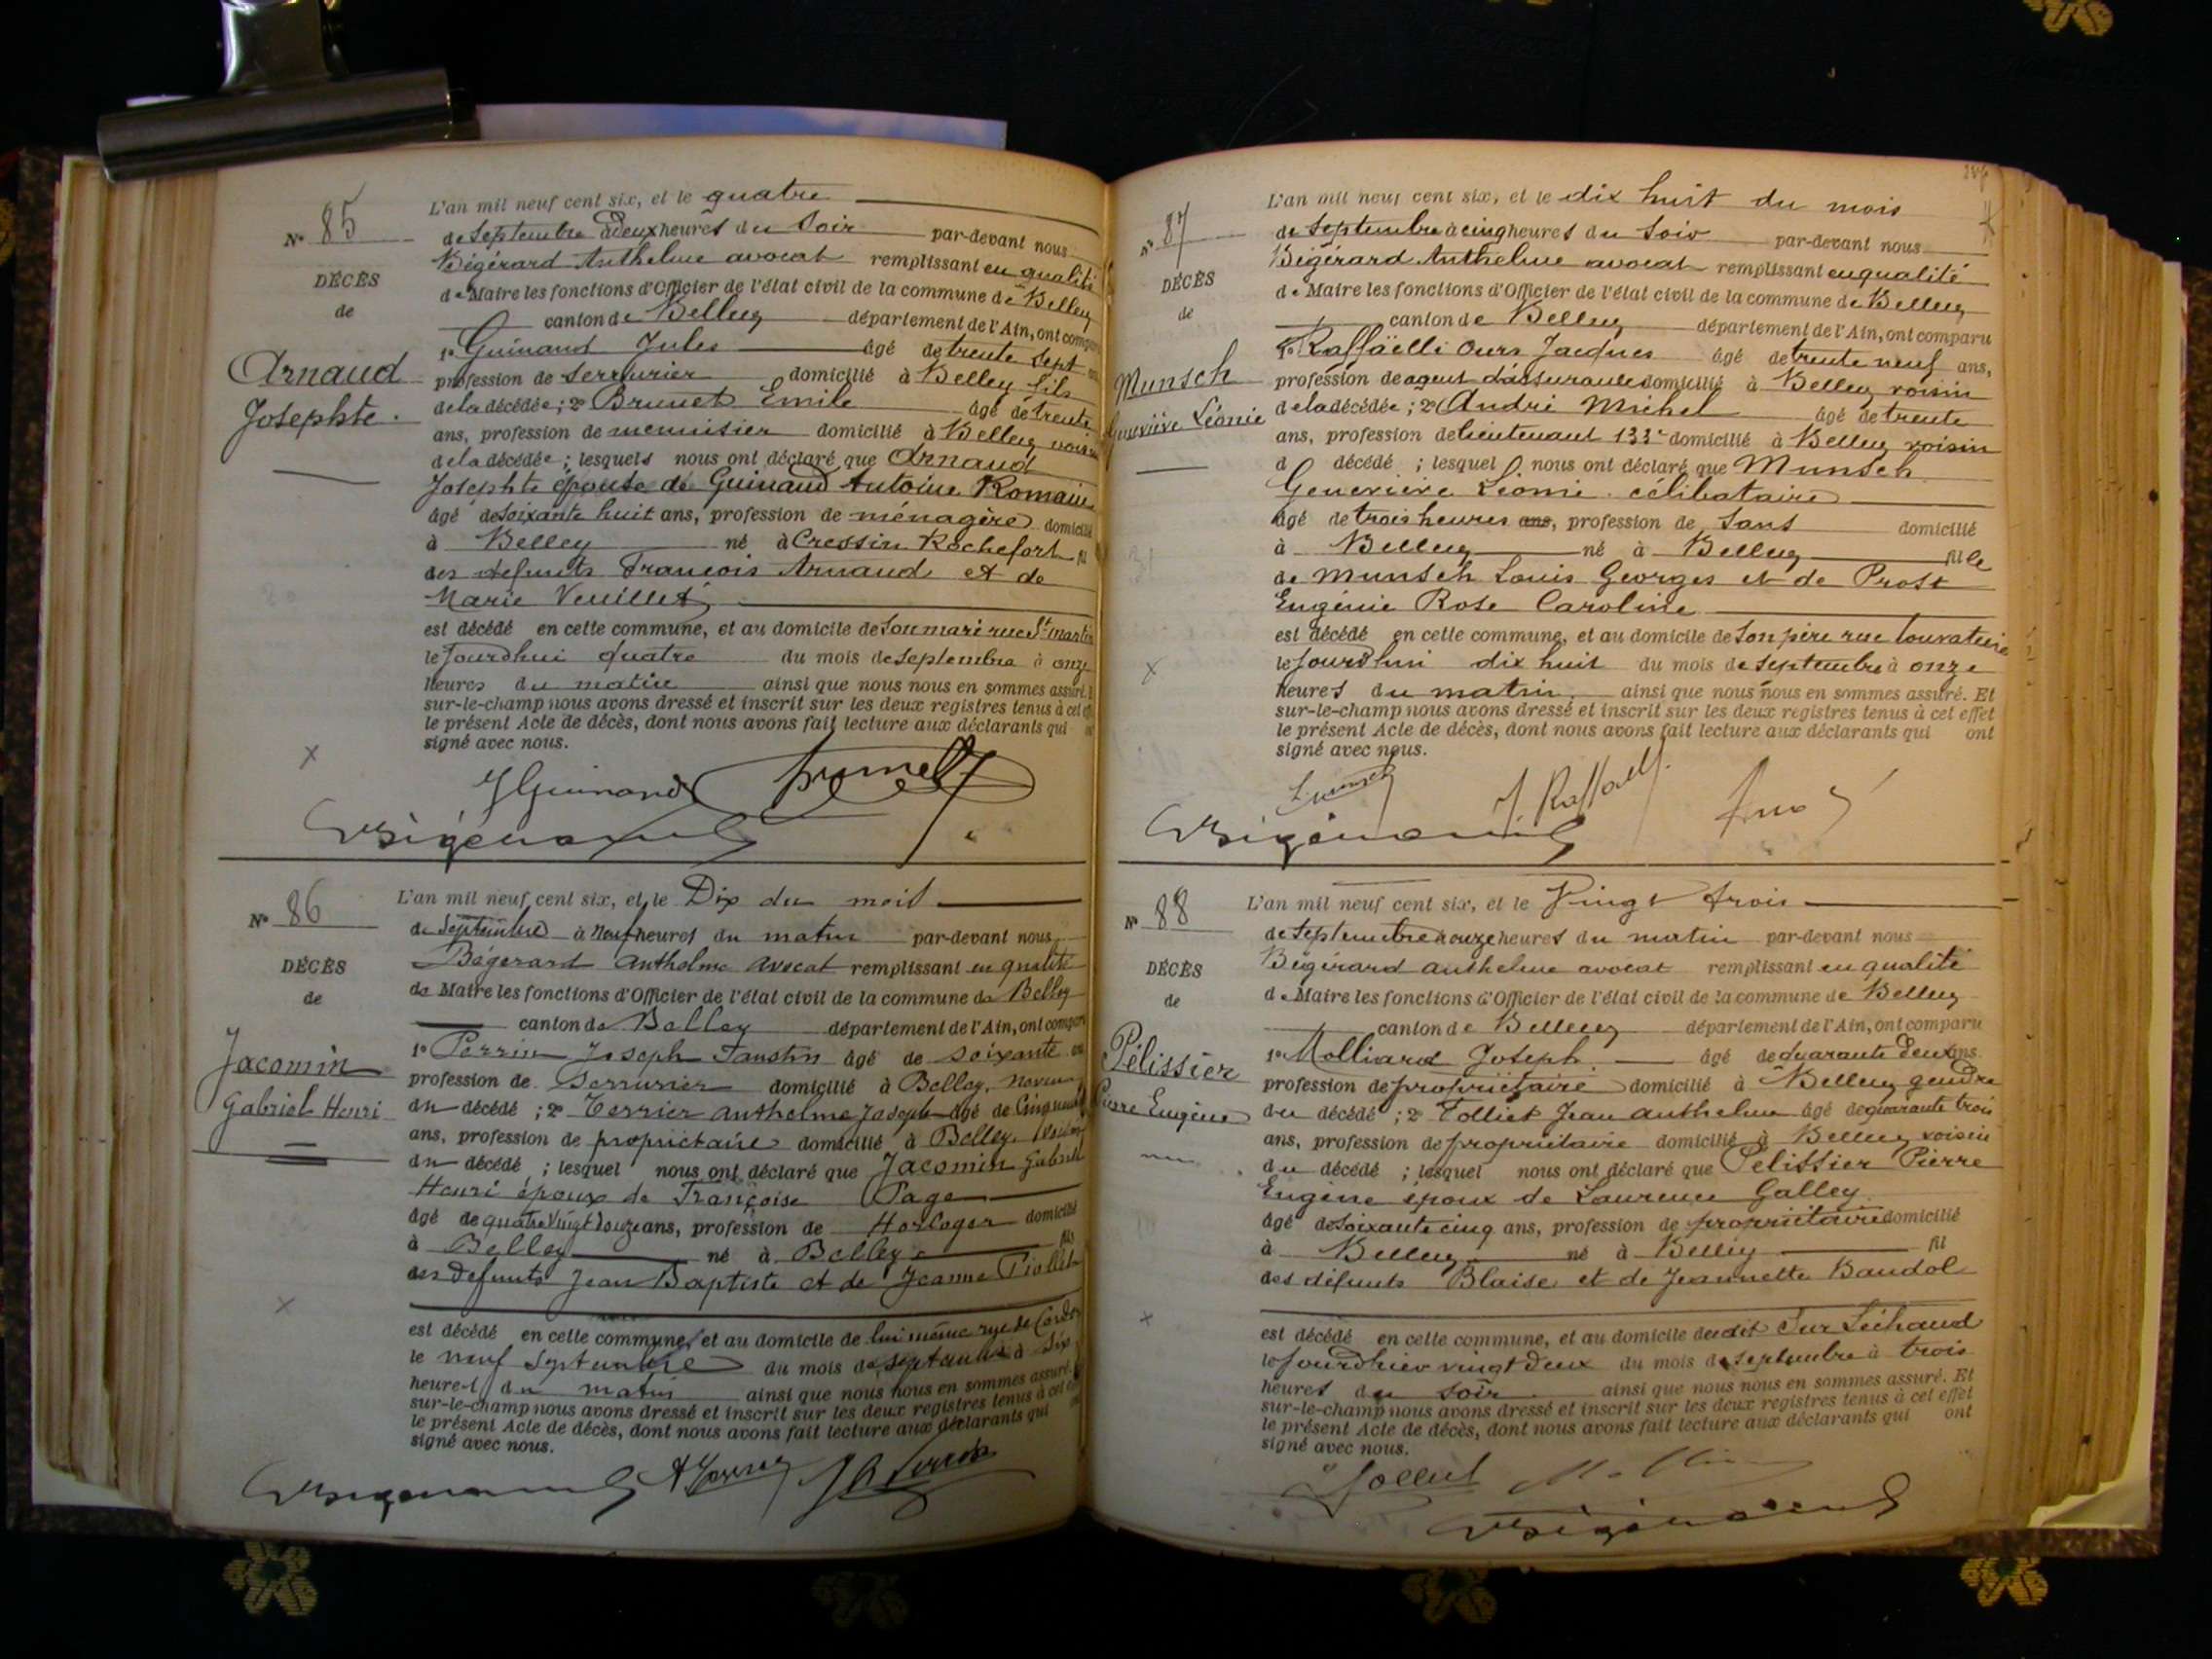 N° 85
DÉCÈS
de
Arnaud
Josephte.
L'an mil neuf cent six, et le quatre
de Septembre à deux heures du Soir par-devant nous
Bégérard Anthelme avocat remplissant en qualité
de Maire les fonctions d'Officier de l'état civil de la commune de Belley
canton de Belley département de l'Ain, ont comparu
1° Guinand Jules âgé de trente sept
profession de serrurier domicilié à Belley fils
de la décédée; 2° Brunet Emile âgé de trente
ans, profession de menuisier domicilié à Belley voisin
de la décédée; lesquels nous ont déclaré que Arnaud
Josephte épouse de Guinand Antoine Romain
âgé de soixante huit ans, profession de ménagère domicilié
à Belley né à Cressin Rochefort fil
des defunts François Arnaud et de
Marie Veuillet
est décédé en cette commune, et au domicile de son mari rue St martin
le jourdhui quatre du mois de septembre à onze
heures du matin ainsi que nous nous en sommes assuré.
sur-le-champ nous avons dressé et inscrit sur les deux registres tenus à cet
le présent Acte de décès, dont nous avons fait lecture aux déclarants qui
signé avec nous.
JGuinand Brunet
Bégérard
N° 86
DÉCÈS
de
Jacomin
Gabriel Henri
L'an mil neuf cent six, et le Dix du mois
de Septembre à Neuf heures du matin par-devant nous
Bégérard Anthelme Avocat remplissant en qualité
de Maire les fonctions d'Officier de l'état civil de la commune de Belley
canton de Belley département de l'Ain, ont comparu
1° Perrin Joseph Faustin âgé de soixante
profession de Serrurier domicilié à Belley, neveu
du décédé; 2° Terrier anthelme Joseph âgé de Cinquante
ans, profession de propriétaire domicilié à Belley, Voisin
du décédé; lesquel nous ont déclaré que Jacomin Gabriel
Henri époux de Françoise Page
âgé de quatre Vingt douze ans, profession de Horloger domicilié
à Belley né à Belley fils
des defunts Jean Baptiste et de Jeanne Piollet
est décédé en cette commune, et au domicile de lui même rue de
le neuf Septembre du mois de septembre à Six
heures du matin ainsi que nous nous en sommes assuré.
sur-le-champ nous avons dressé et inscrit sur les deux registres tenus à cet
le présent Acte de décès, dont nous avons fait lecture aux déclarants qui
signé avec nous.
Bégérard
N° 87
DÉCÈS
de
Munsch
Geneviève Léonie
L'an mil neuf cent six, et le dix huit du mois
de Septembre à cinq heures du Soir par-devant nous
Bégérard Anthelme avocat remplissant en qualité
de Maire les fonctions d'Officier de l'état civil de la commune de Belley
canton de Belley département de l'Ain, ont comparu
1° Raffaëlli Ours Jacques âgé de trente neuf ans,
profession de agent d'assurances domicilié à Belley voisin
de la décédée; 2° André Michel âgé de trente
ans, profession de lieutenant 133e domicilié à Belley voisin
d décédé; lesquel nous ont déclaré que Munsch
Geneviève Léonie célibataire
âgé de trois heures ans, profession de sans domicilié
à Belley né à Belley fille
de Munsch Louis Georges et de Prost
Eugénie Rose Caroline
est décédé en cette commune, et au domicile de son père rue
le jourdhui dix huit du mois de septembre à onze
heures du matin. ainsi que nous nous en sommes assuré. Et
sur-le-champ nous avons dressé et inscrit sur les deux registres tenus à cet effet
le présent Acte de décès, dont nous avons fait lecture aux déclarants qui ont
signé avec nous.
Bégérard
N° 88
DÉCÈS
de
Pélissier
Pierre Eugène
L'an mil neuf cent six, et le Vingt trois
de septembre à onze heures du matin par-devant nous
Bégérard anthelme avocat remplissant en qualité
de Maire les fonctions d'Officier de l'état civil de la commune de Belley
canton de Belley département de l'Ain, ont comparu
1° Molliard Joseph. âgé de quarante deux ans
profession de propriétaire domicilié à Belley gendre
du décédé; 2° Folliet Jean anthelme âgé de quarante trois
ans, profession de propriétaire domicilié à Belley voisin
du décédé; lesquel nous ont déclaré que Pélissier Pierre
Eugène époux de Laurence Galley
âgé de soixante cinq ans, profession de propriétaire domicilié
à Belley né à Belley fil
des défunts Blaise et de Jeannette Baudol
est décédé en cette commune, et au domicile dudit Sur Léchaud
le jourdhier vingt deux du mois de septembre à trois
heures du soir ainsi que nous nous en sommes assuré. Et
sur-le-champ nous avons dressé et inscrit sur les deux registres tenus à cet effet
le présent Acte de décès, dont nous avons fait lecture aux déclarants qui ont
signé avec nous.
Bégérard